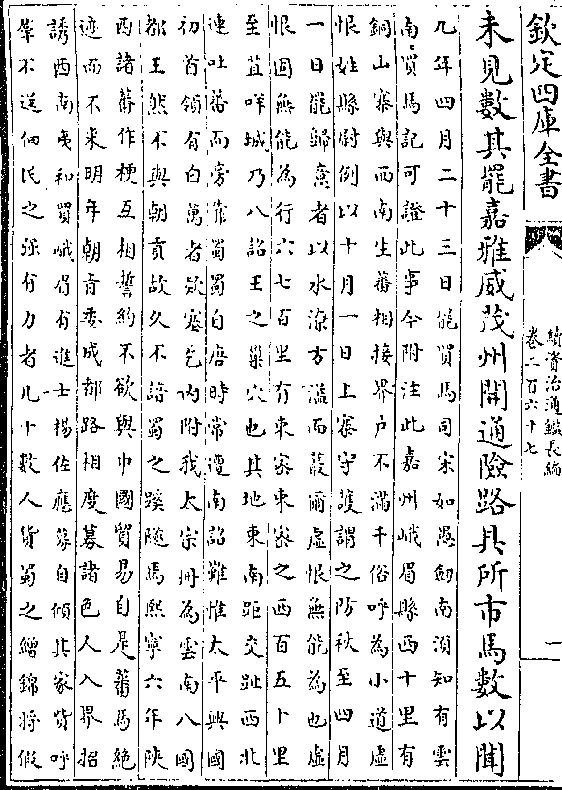 欽定四庫全書
續資治通鑑長編
卷二百六十七
一
未見數其罷嘉雅威茂州開通險路具所市馬數以聞
九年四月二十三日罷買馬司宋如愚劒南須知有雲
南買馬記可證此事今附注此嘉州峨眉縣西十里有
銅山寨與西南生蕃相接界户不滿千俗呼為小道虚
恨姓縣尉例以十月一日上寨守護謂之防秋至四月
一日罷歸寨者以水潦方溢而蕞爾虚恨無能為也虚
恨固無能為行六七百里有束密束密之西百五十里
至苴咩城乃八詔王之巢穴也其地東南距交趾西北
連吐蕃而旁靠蜀蜀自唐時常遭南詔難惟太平興國
初首領有白萬者欵塞乞内附我太宗冊為雲南八國
都王然不與朝貢故久不諳蜀之蹊隧焉熙寧六年陜
西諸蕃作梗互相誓約不欲與中國貿易自是蕃馬絶
迹而不來明年朝肯委成都路相度募諸色人入界招
誘西南夷和買峨眉有進士楊佐應募自傾其家貲呼
羣不逞佃民之强有力者凡十數人貨蜀之繒錦將假